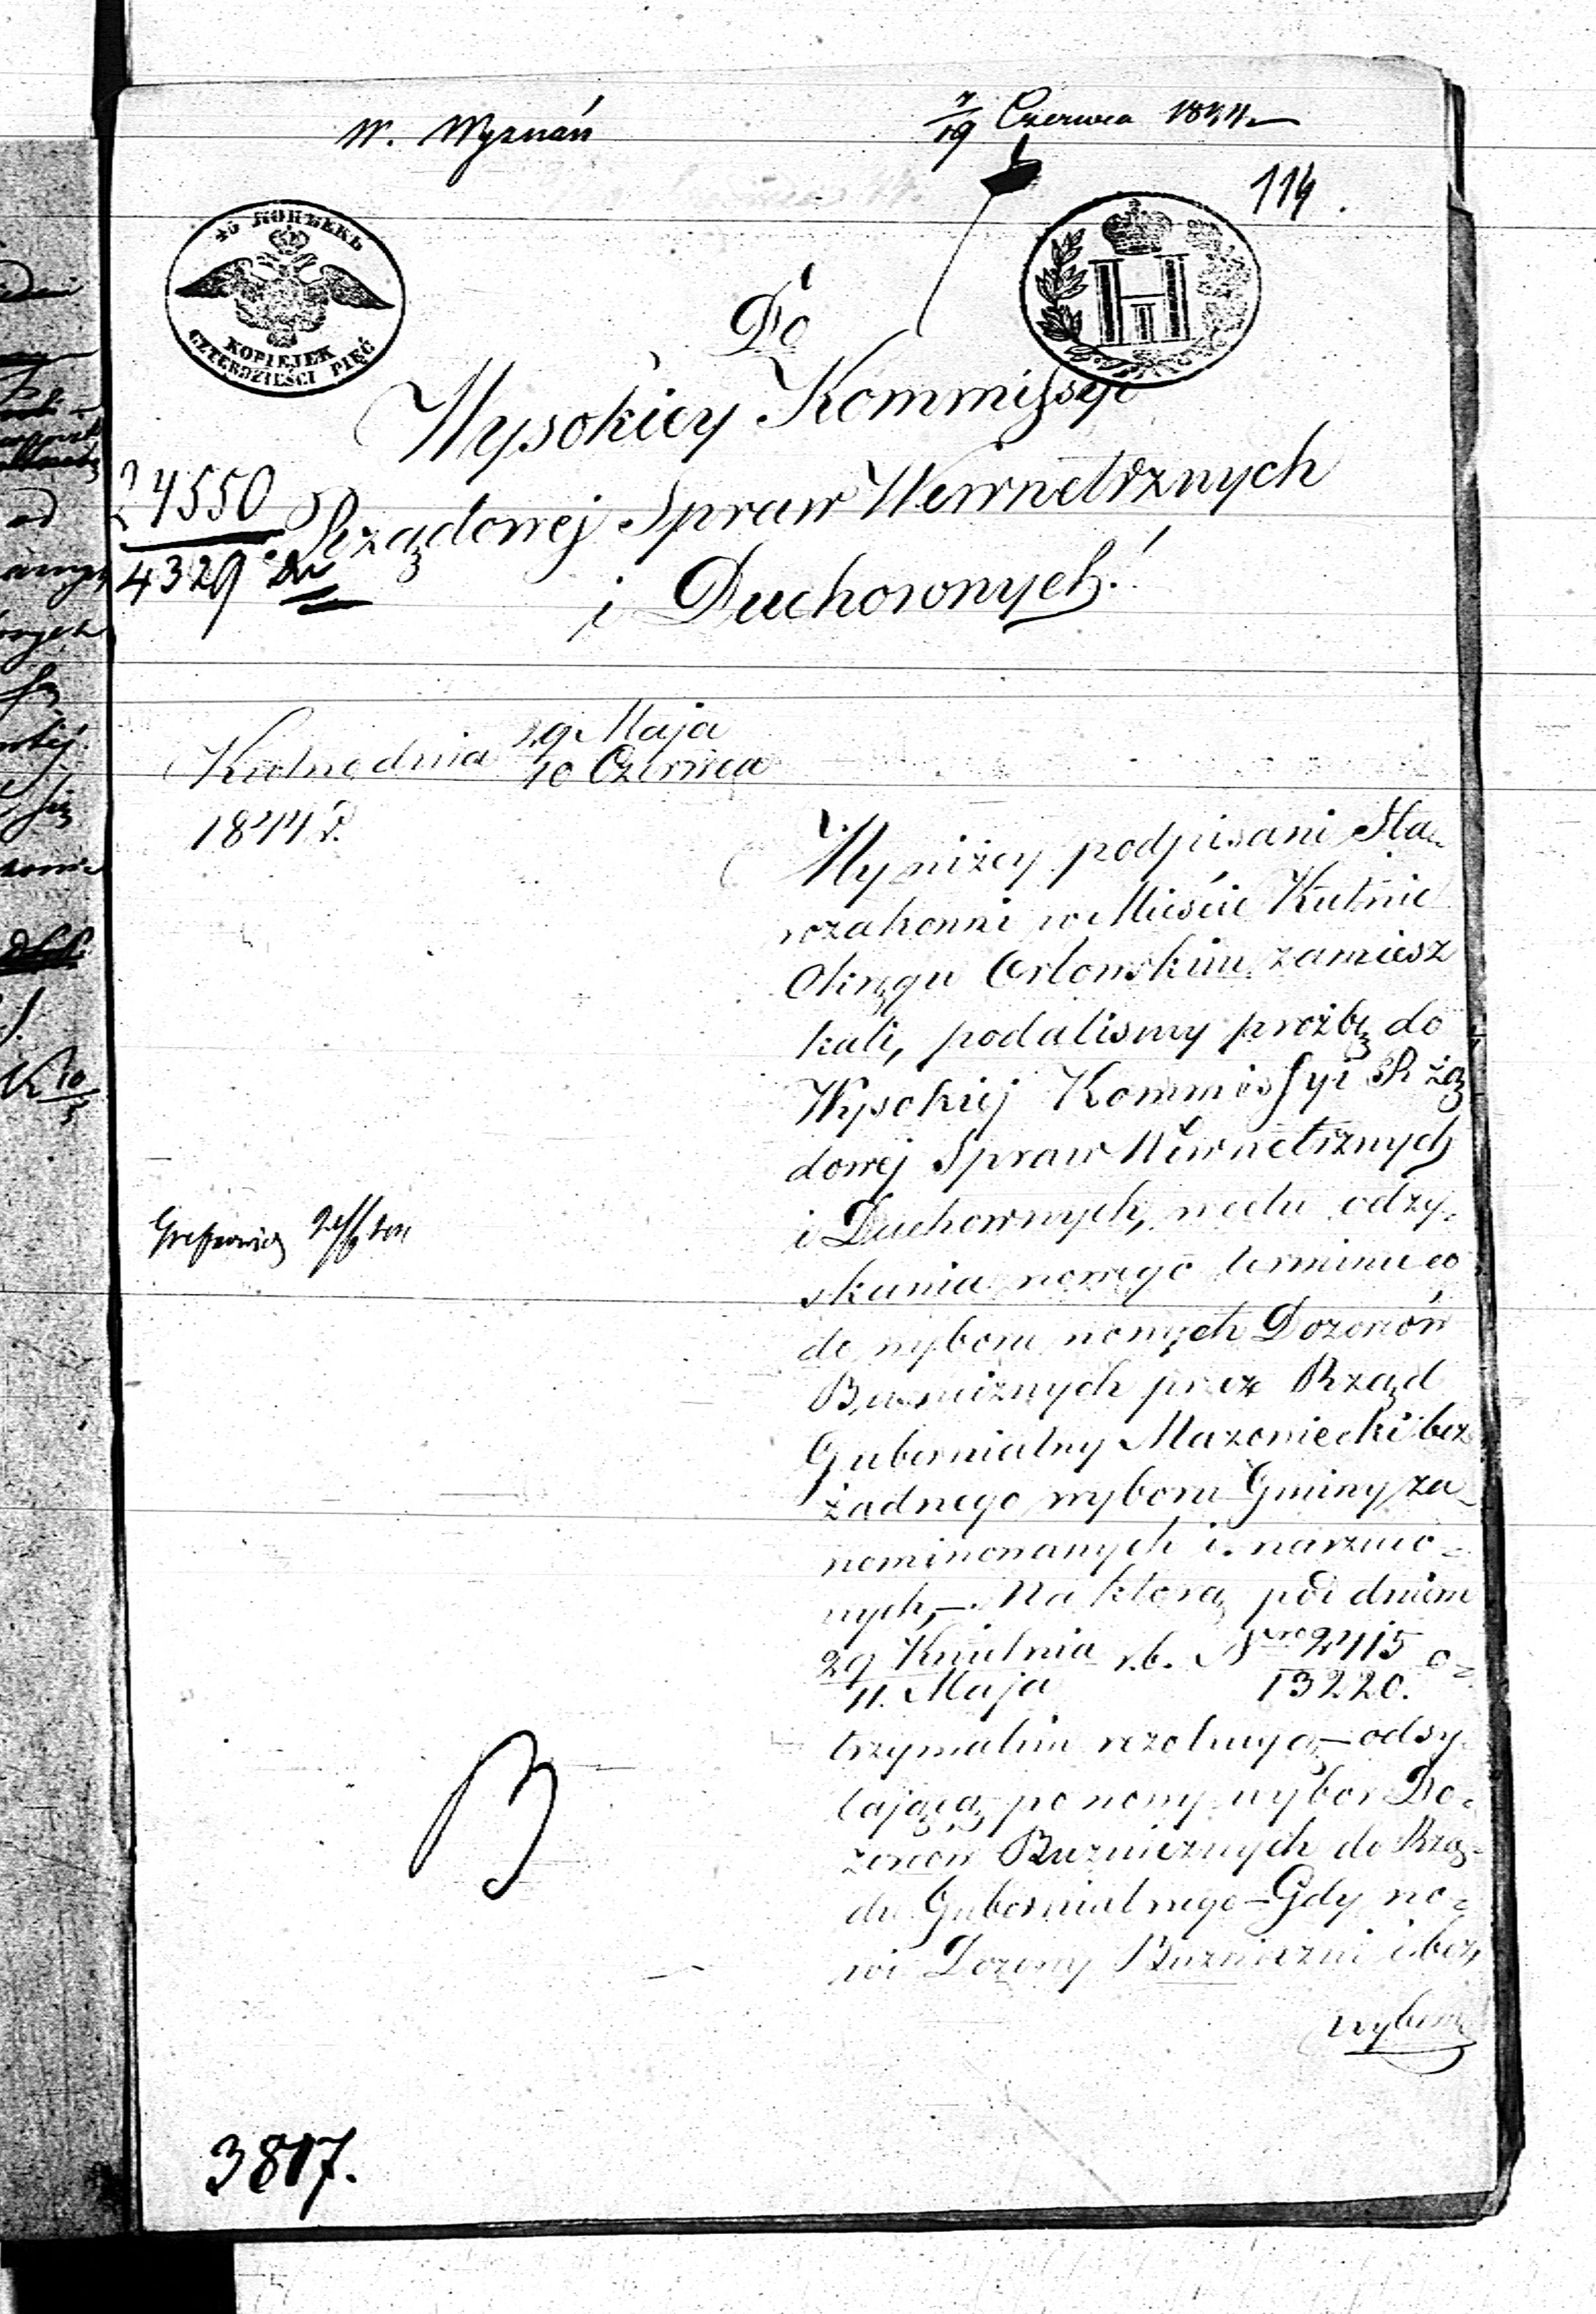 W. Wyznań
7/19 Czerwca 1844
114.
45 КОПѢЕКЪ
KOPIEJEK
CZTERDZIEŚCI PIĘĆ
Do
Wysokiey Kommissyi
Rządowej Spraw Wewnetrznych
i Duchownych!
24550
4329
Kutno dnia 29 Maja
10 Czerwca
1844 r.
My niżey podpisani Sta-
rozakonni w Mieście Kutnie
Okręgu Orłowskim zamiesz
kali, podalismy prożbę do
Wysokiej Kommissyi Rzą
dowej Spraw Wewnetrznych
i Duchownych, wcelu odzy-
skania nowego terminu co
do wyboru nowych Dozorów
Bużnicznych przez Rząd
Gubernialny Mazowiecki bez
żadnego wyboru Gminy za-
nominowanych i narzuco=
nych,— Na ktorą pod dniem
29 Kwietnia r.b. Nro 2415 o=
11. Maja 13220.
trzymalim rezolucyą,— odsy
łającą po nowy wybor Do=
zorów Buzniczych do Rzą=
du Gubernialnego — Gdy no=
wi Dozory Buzniczni i bez
wyboru
3817.